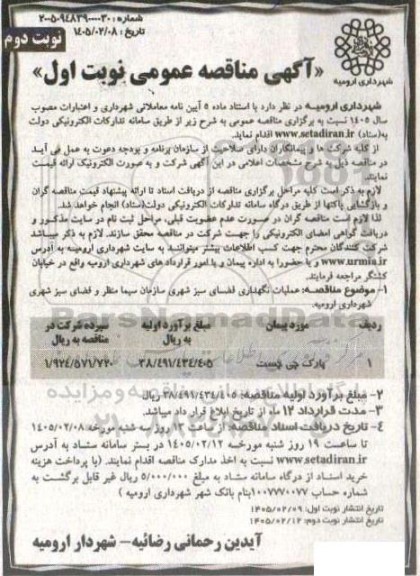 شماره : ۲۰۰۵۰۹۴۸۳۹۰۰۰۰۳۰
تاریخ : ۱۴۰۵/۰۲/۰۸
نوبت دوم
شهرداری ارومیه
«آگهی مناقصه عمومی نوبت اول»
شهرداری ارومیه در نظر دارد با استناد ماده ۵ آیین نامه معاملاتی شهرداری و اعتبارات مصوب
سال ۱۴۰۵ نسبت به برگزاری مناقصه عمومی به شرح زیر از طریق سامانه تدارکات الکترونیکی دولت
به(ستاد) www.setadiran.ir اقدام نماید.
از کلیه شرکت ها و پیمانکاران دارای صلاحیت از سازمان برنامه و بودجه دعوت به عمل می آید
در مناقصه ذیل به شرح مشخصات اعلامی در این آگهی شرکت و به صورت الکترونیک ارائه قیمت
نمایند.
لازم به ذکر است کلیه مراحل برگزاری مناقصه از دریافت اسناد تا ارائه پیشنهاد قیمت مناقصه گران
و بازگشایی پاکتها از طریق درگاه سامانه تدارکات الکترونیکی دولت(ستاد) انجام خواهد شد.
لذا لازم است مناقصه گران در صورت عدم عضویت قبلی، مراحل ثبت نام در سایت مذکور و
دریافت گواهی امضای الکترونیکی را جهت شرکت در مناقصه محقق سازند. لازم به ذکر میباشد
شرکت کنندگان محترم جهت کسب اطلاعات بیشتر میتوانند به سایت شهرداری ارومیه به آدرس
www.urmia.ir و یا حضورا به اداره پیمان و یا امور قراردادهای شهرداری ارومیه واقع در خیابان
کشتگر مراجعه فرمایند.
۱- موضوع مناقصه: عملیات نگهداری فضای سبز شهری سازمان سیما منظر و فضای سبز شهری
شهرداری ارومیه.
ردیف مورد پیمان مبلغ برآورد اولیه به ریال سپرده شرکت در مناقصه به ریال
۱ پارک جی چست ۳۸/۴۹۱/۴۳۴/۴۰۵ ۱/۹۲۴/۵۷۱/۷۲۰
۲- مبلغ برآورد اولیه مناقصه: ۳۸/۴۹۱/۴۳۴/۴۰۵ ریال
۳- مدت قرارداد ۱۲ ماه از تاریخ ابلاغ قرار داد میباشد.
۴- تاریخ دریافت اسناد مناقصه: از ساعت ۱۴ روز سه شنبه مورخه ۱۴۰۵/۰۲/۰۸
تا ساعت ۱۹ روز شنبه مورخه ۱۴۰۵/۰۲/۱۲ در بستر سامانه ستاد به آدرس
www.setadiran.ir نسبت به اخذ مدارک مناقصه اقدام نمایند. (با پرداخت هزینه
خرید اسناد از درگاه سامانه ستاد به مبلغ ۵/۰۰۰/۰۰۰ ریال غیر قابل برگشت به
شماره حساب ۱۰۰۷۷۷۰۰۷۷ بنام بانک شهر شهرداری ارومیه )
تاریخ انتشار نوبت اول: ۱۴۰۵/۰۲/۰۹
تاریخ انتشار نوبت دوم: ۱۴۰۵/۰۲/۱۲
آیدین رحمانی رضائیه- شهردار ارومیه